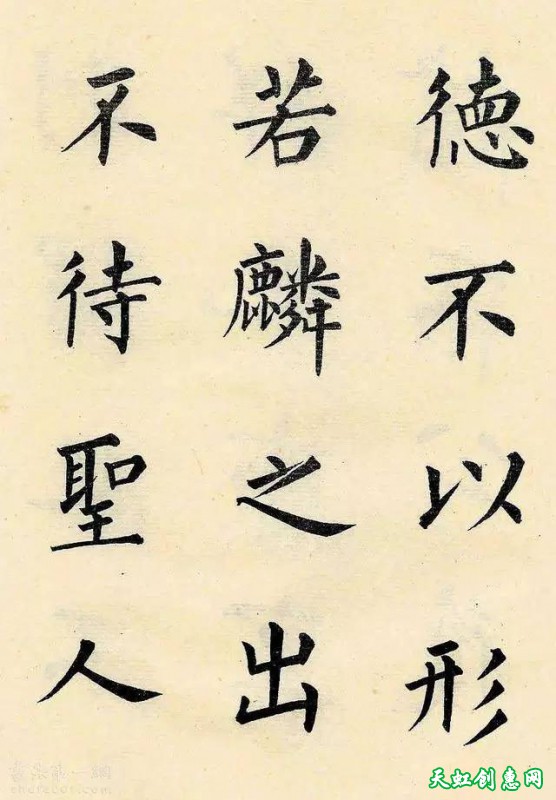 德不以形
若麟之出
不待聖人
天虹创惠网